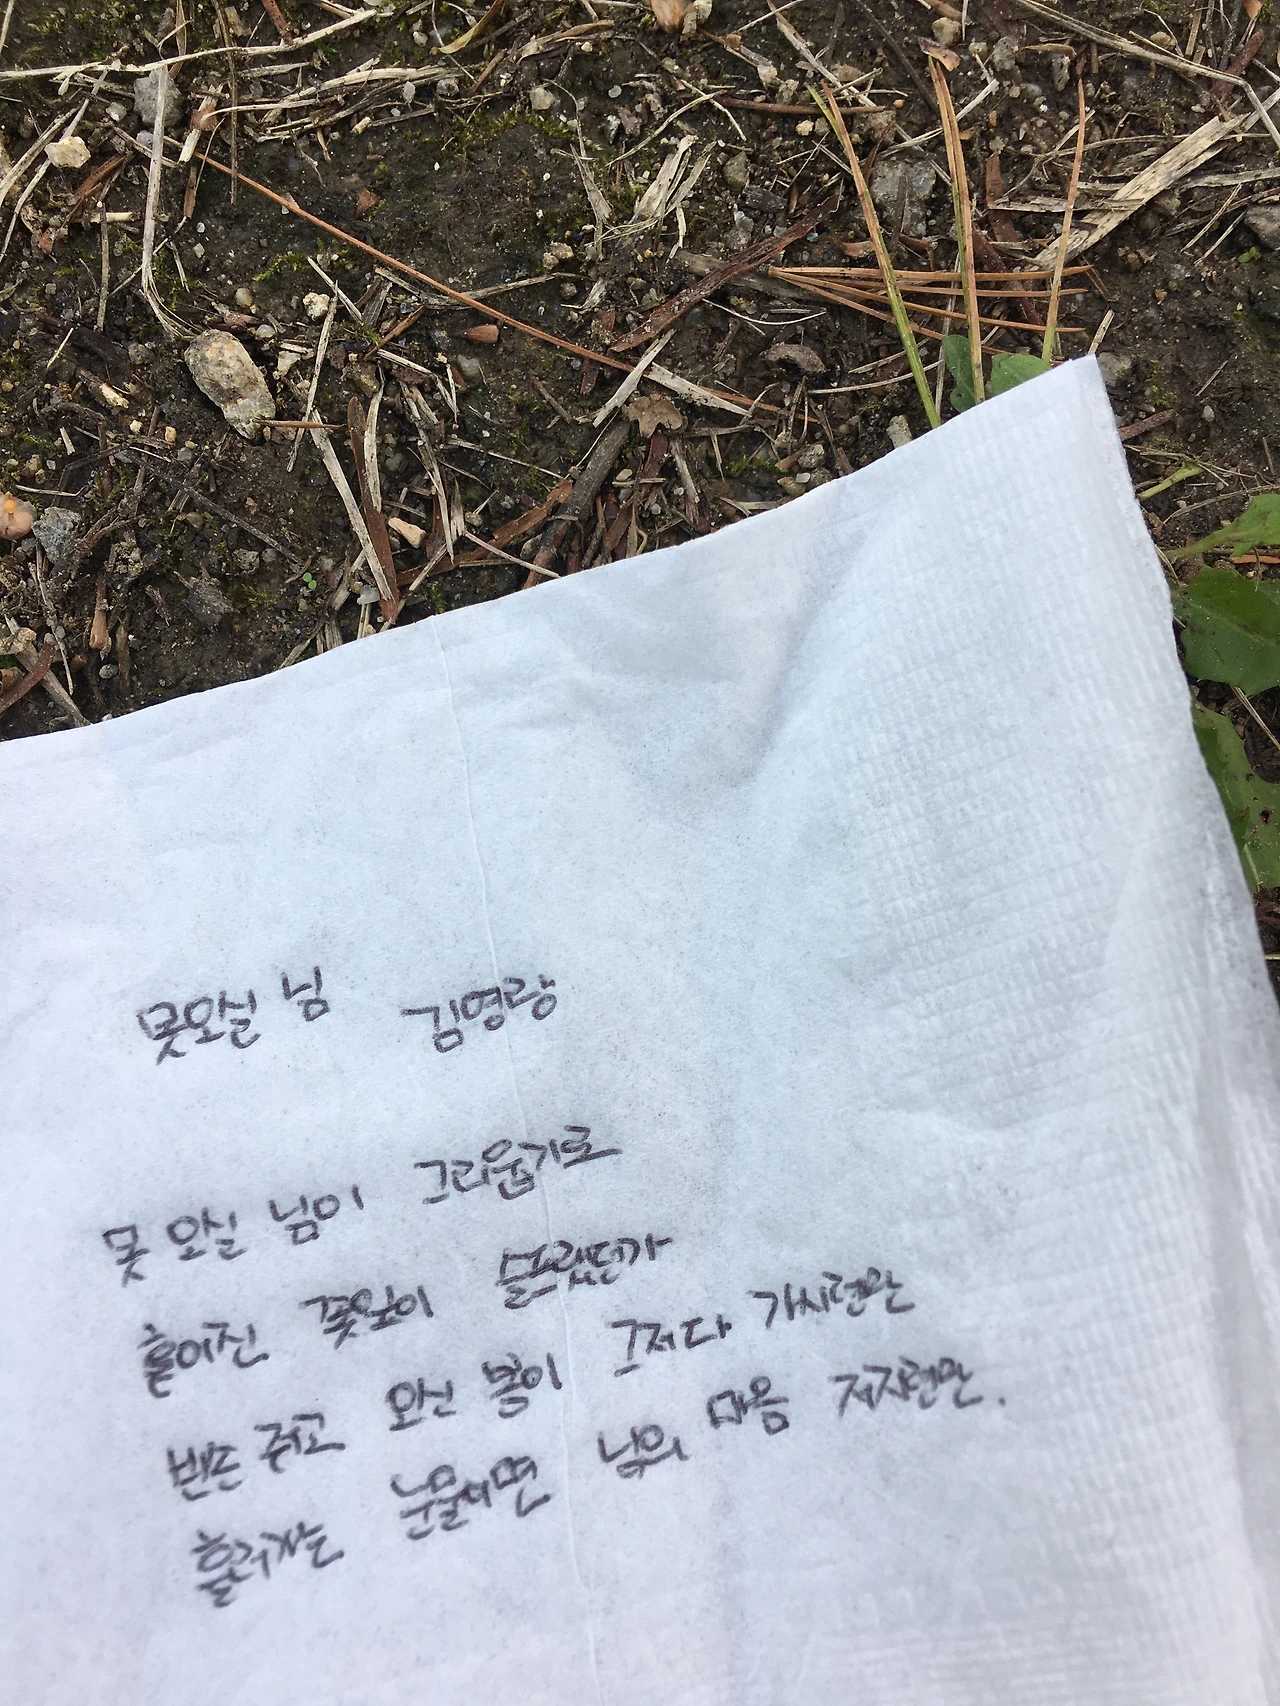 못오실 님 김영랑
못 오실 님이 그리웁기로
흩어진 꽃잎이 슬프랬던가
빈손 쥐고 오신 봄이 그저다 가시련만
흘러가는 눈물이면 님의 마음 저지련만.